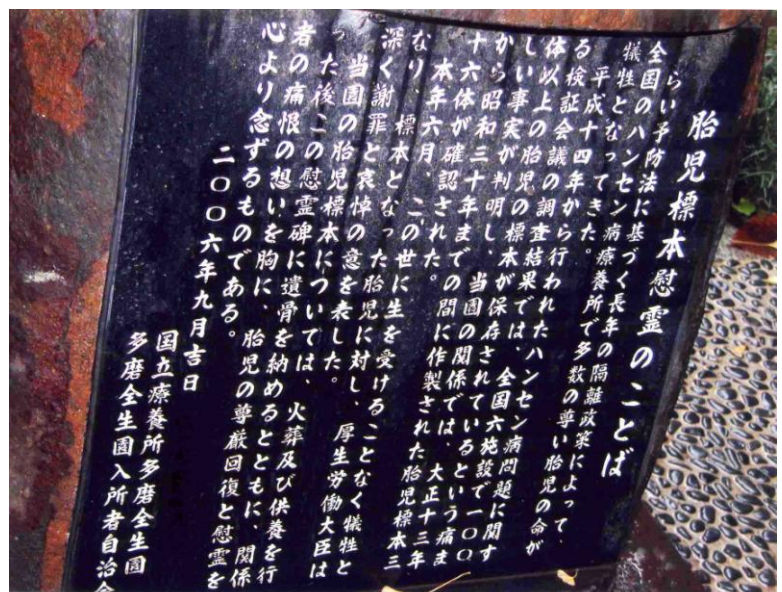 胎児標本慰霊のことば
らい予防法に基づく長年の隔離政策によって、
全国のハンセン病療養所で多数の尊い胎児の命が
犠牲となってきた。
平成十四年から行われたハンセン病問題に関す
る検証会議の調査結果では、全国六施設で一〇〇
体以上の胎児の標本が保存されているという痛ま
しい事実が判明し、当園の関係では、大正十三年
から昭和三十年までの間に作製された胎児標本三
十六体が確認された。
本年六月、この世に生を受けることなく犠牲と
なり、標本となった胎児に対し、厚生労働大臣は
深く謝罪と哀悼の意を表した。
当園の胎児標本については、火葬及び供養を行
った後この慰霊碑に遺骨を納めるとともに、関係
者の痛恨の想いを胸に、胎児の尊厳回復と慰霊を
心より念ずるものである。
二〇〇六年九月吉日
国立療養所多磨全生園
多磨全生園入所者自治会